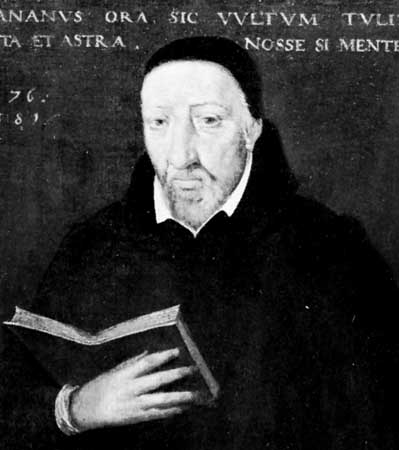 ANANVS ORA SIC VVLTVM TVLIT
TA ET ASTRA . NOSSE SI MENTE
76.
81.